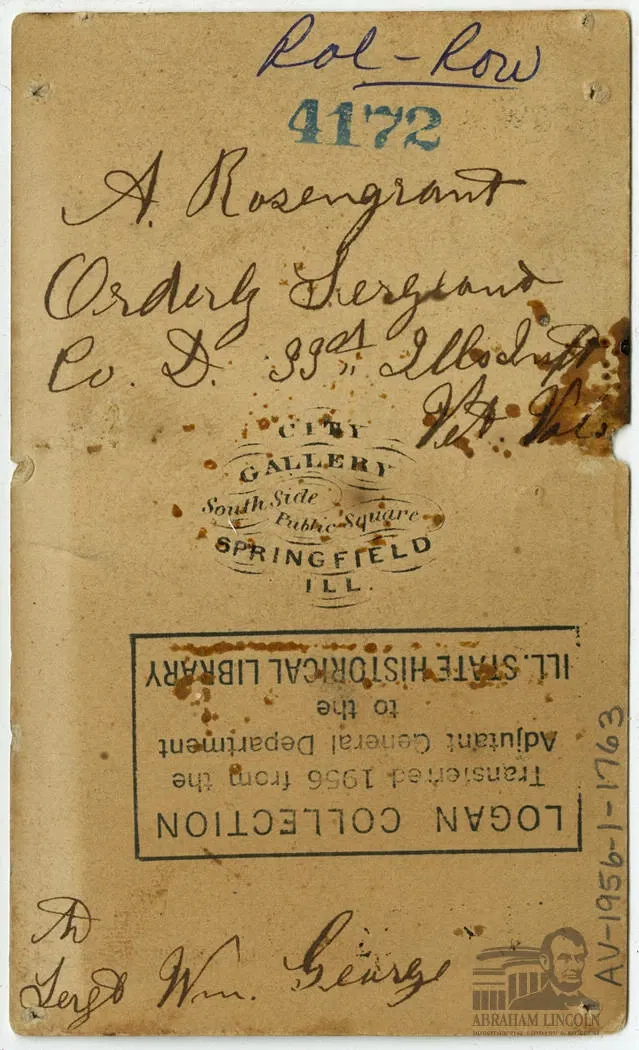 Rol - Row
4172
A. Rosengrant
Orderly Sergeant
Co. D. 33rd Ills Inft
Vet. Vols
CITY
GALLERY
South Side
Public Square
SPRINGFIELD
ILL.
LOGAN COLLECTION
Transferred 1956 from the
Adjutant General Department
to the
ILL. STATE HISTORICAL LIBRARY
AV-1956-1-1763
To
Sergt Wm. George
ABRAHAM LINCOLN
PRESIDENTIAL LIBRARY & MUSEUM